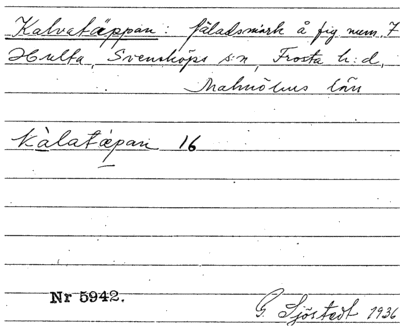 Kalvatäppan: fäladsmark å fig num. 7
Hulta, Svensköps s:n, Frosta h:d,
Malmöhus län
kàlatápan 16
Nr 5942.
G. Sjöstedt 1936